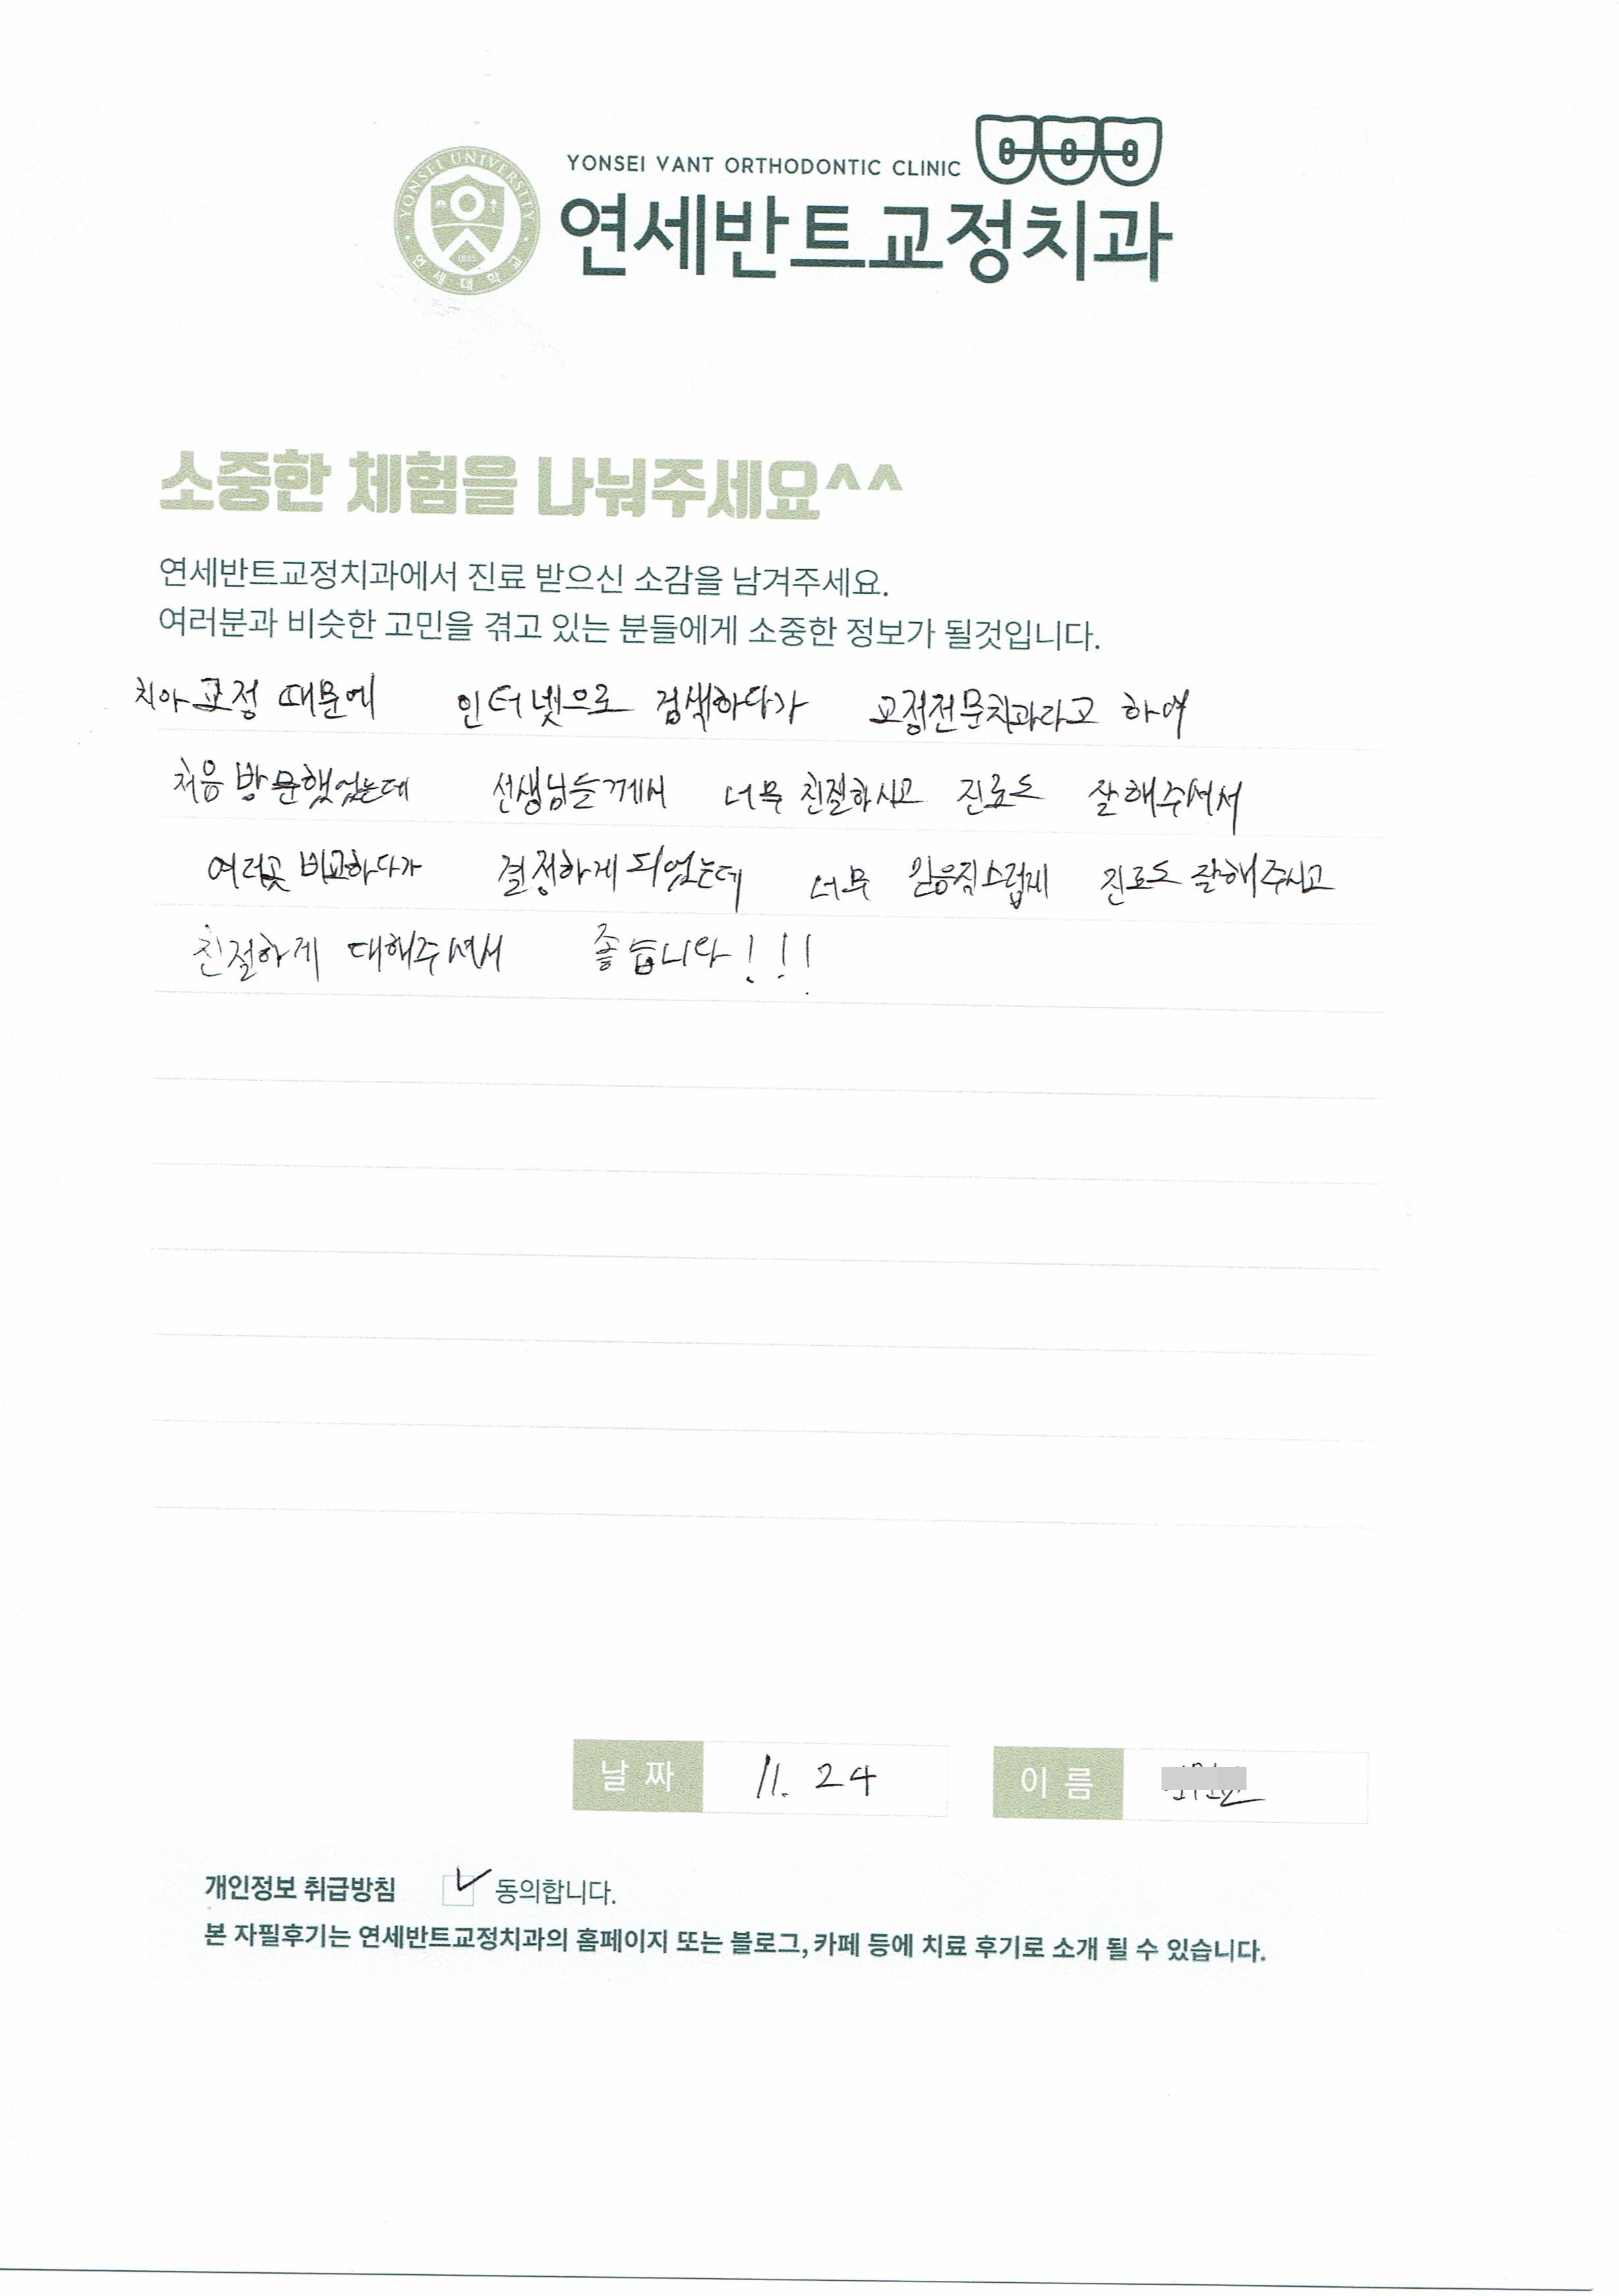 YONSEI UNIVERSITY
1885
연세대학교
YONSEI VANT ORTHODONTIC CLINIC
연세반트교정치과
소중한 체험을 나눠주세요^^
연세반트교정치과에서 진료 받으신 소감을 남겨주세요.
여러분과 비슷한 고민을 겪고 있는 분들에게 소중한 정보가 될것입니다.
치아 교정 때문에 인터넷으로 검색하다가 교정전문치과라고 하여
처음 방문했었는데 선생님들께서 너무 친절하시고 진료도 잘해주셔서
여러곳 비교하다가 결정하게 되었는데 너무 믿음직스럽게 진료도 잘해주시고
친절하게 대해주셔서 좋습니다!!!
날짜 11. 24 이름
개인정보 취급방침 동의합니다.
본 자필후기는 연세반트교정치과의 홈페이지 또는 블로그, 카페 등에 치료 후기로 소개 될 수 있습니다.